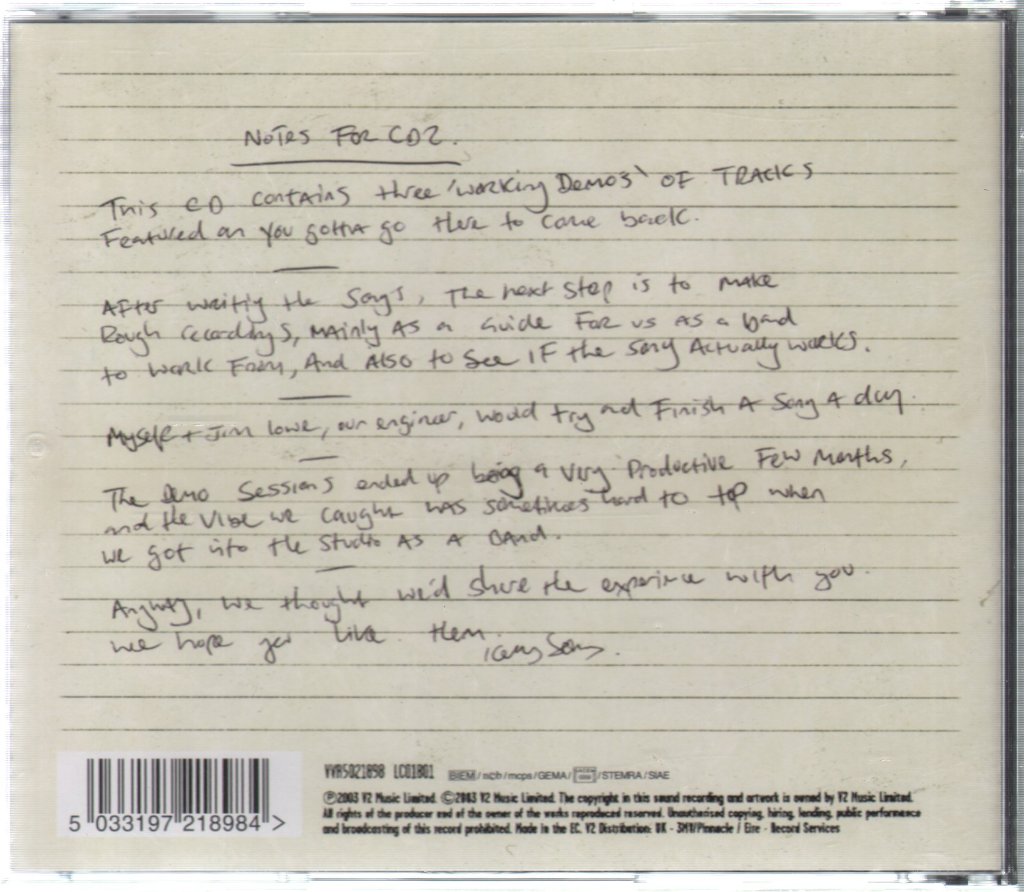 NOTES FOR CD2.
This CD contains three 'working Demos' OF TRACKS
Featured on You gotta go there to come back.
AFter writing the Songs, The next step is to make
Rough recordings, mainly as a guide For us as a band
to work From, And Also to See IF the song Actually works.
Myself + Jim Lowe, our engineer, would try and Finish A Song A day.
The Demo Sessions ended up being a very Productive Few Months,
and the Vibe we caught was sometimes hard to top when
we got into the Studio AS A Band.
Anyway, we thought we'd share the experience with you.
we hope you like them.
Kelly Jones.
VVR5021898 LC01801 BIEM/ncb/mcps/GEMA/STEMRA/SIAE
Ⓟ2003 V2 Music Limited. ©2003 V2 Music Limited. The copyright in this sound recording and artwork is owned by V2 Music Limited.
All rights of the producer and of the owner of the works reproduced reserved. Unauthorised copying, hiring, lending, public performance
and broadcasting of this record prohibited. Made in the EC. V2 Distribution: UK - SMV/Pinnacle / Eire - Record Services
5 033197 218984 >